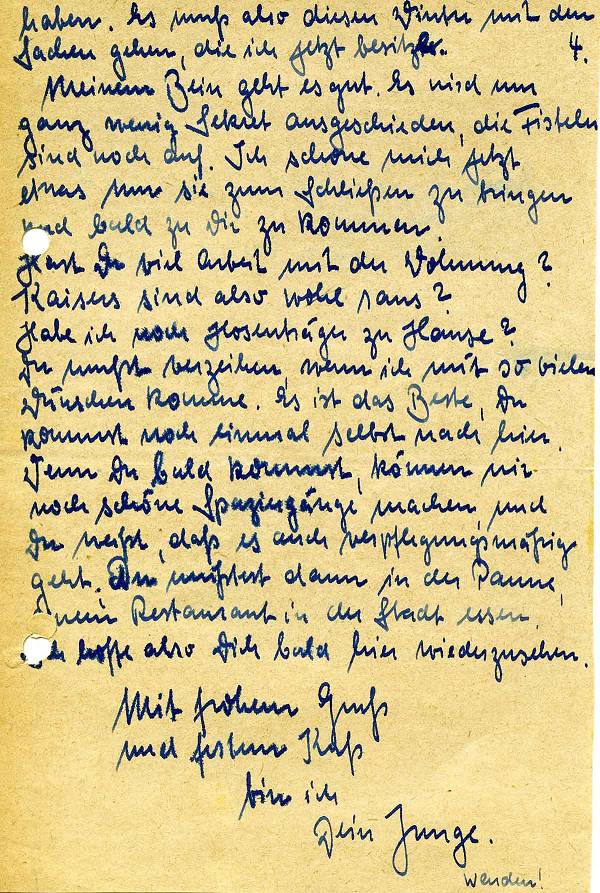 haben. Es muß also diesen Winter mit den
Sachen gehen, die ich jetzt besitze. 4.
Meinem Bein geht es gut. Es wird nur
ganz wenig Sekret ausgeschieden, die Fisteln
sind noch auf. Ich schone mich jetzt
etwas um sie zum Schließen zu bringen
und bald zu Dir zu kommen.
Hast Du viel Arbeit mit der Wohnung?
Kaisers sind also wohl raus?
Habe ich noch Hosenträger zu Hause?
Du mußt verzeihen, wenn ich mit so vielen
Wünschen komme. Es ist das Beste, Du
kommst noch einmal selbst nach hier.
Wenn Du bald kommst, können wir
noch schöne Spaziergänge machen und
Du weißt, daß es auch verpflegungsmäßig
geht. Du müßtest dann in der Panne,
nein Restaurant in der Stadt essen.
Ich hoffe also Dich bald hier wiederzusehen.
Mit frohem Gruß
und festem Kuß
bin ich
Dein Junge.
Wenden!